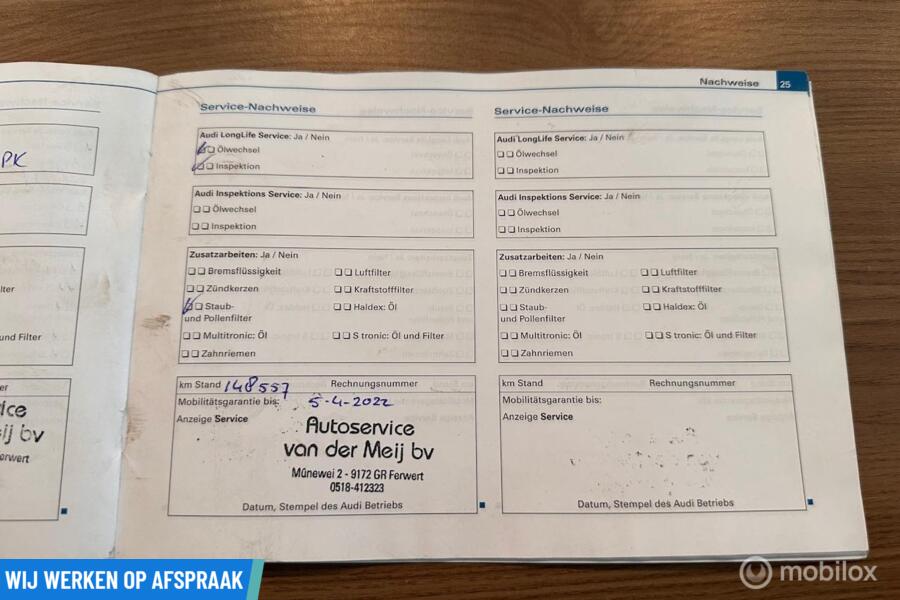 PK
lter
und Filter
er
ice
ij bv
erwert
Nachweise 25
Service-Nachweise
Audi LongLife Service: Ja / Nein
Ölwechsel
Inspektion
Audi Inspektions Service: Ja / Nein
Ölwechsel
Inspektion
Zusatzarbeiten: Ja / Nein
Bremsflüssigkeit Luftfilter
Zündkerzen Kraftstofffilter
Staub- Haldex: Öl
und Pollenfilter
Multitronic: Öl S tronic: Öl und Filter
Zahnriemen
km Stand 148557 Rechnungsnummer
Mobilitätsgarantie bis: 5-4-2022
Anzeige Service
Autoservice
van der Meij bv
Mûnewei 2 - 9172 GR Ferwert
0518-412323
Datum, Stempel des Audi Betriebs
Service-Nachweise
Audi LongLife Service: Ja / Nein
Ölwechsel
Inspektion
Audi Inspektions Service: Ja / Nein
Ölwechsel
Inspektion
Zusatzarbeiten: Ja / Nein
Bremsflüssigkeit Luftfilter
Zündkerzen Kraftstofffilter
Staub- Haldex: Öl
und Pollenfilter
Multitronic: Öl S tronic: Öl und Filter
Zahnriemen
km Stand Rechnungsnummer
Mobilitätsgarantie bis:
Anzeige Service
Datum, Stempel des Audi Betriebs
WIJ WERKEN OP AFSPRAAK
mobilox